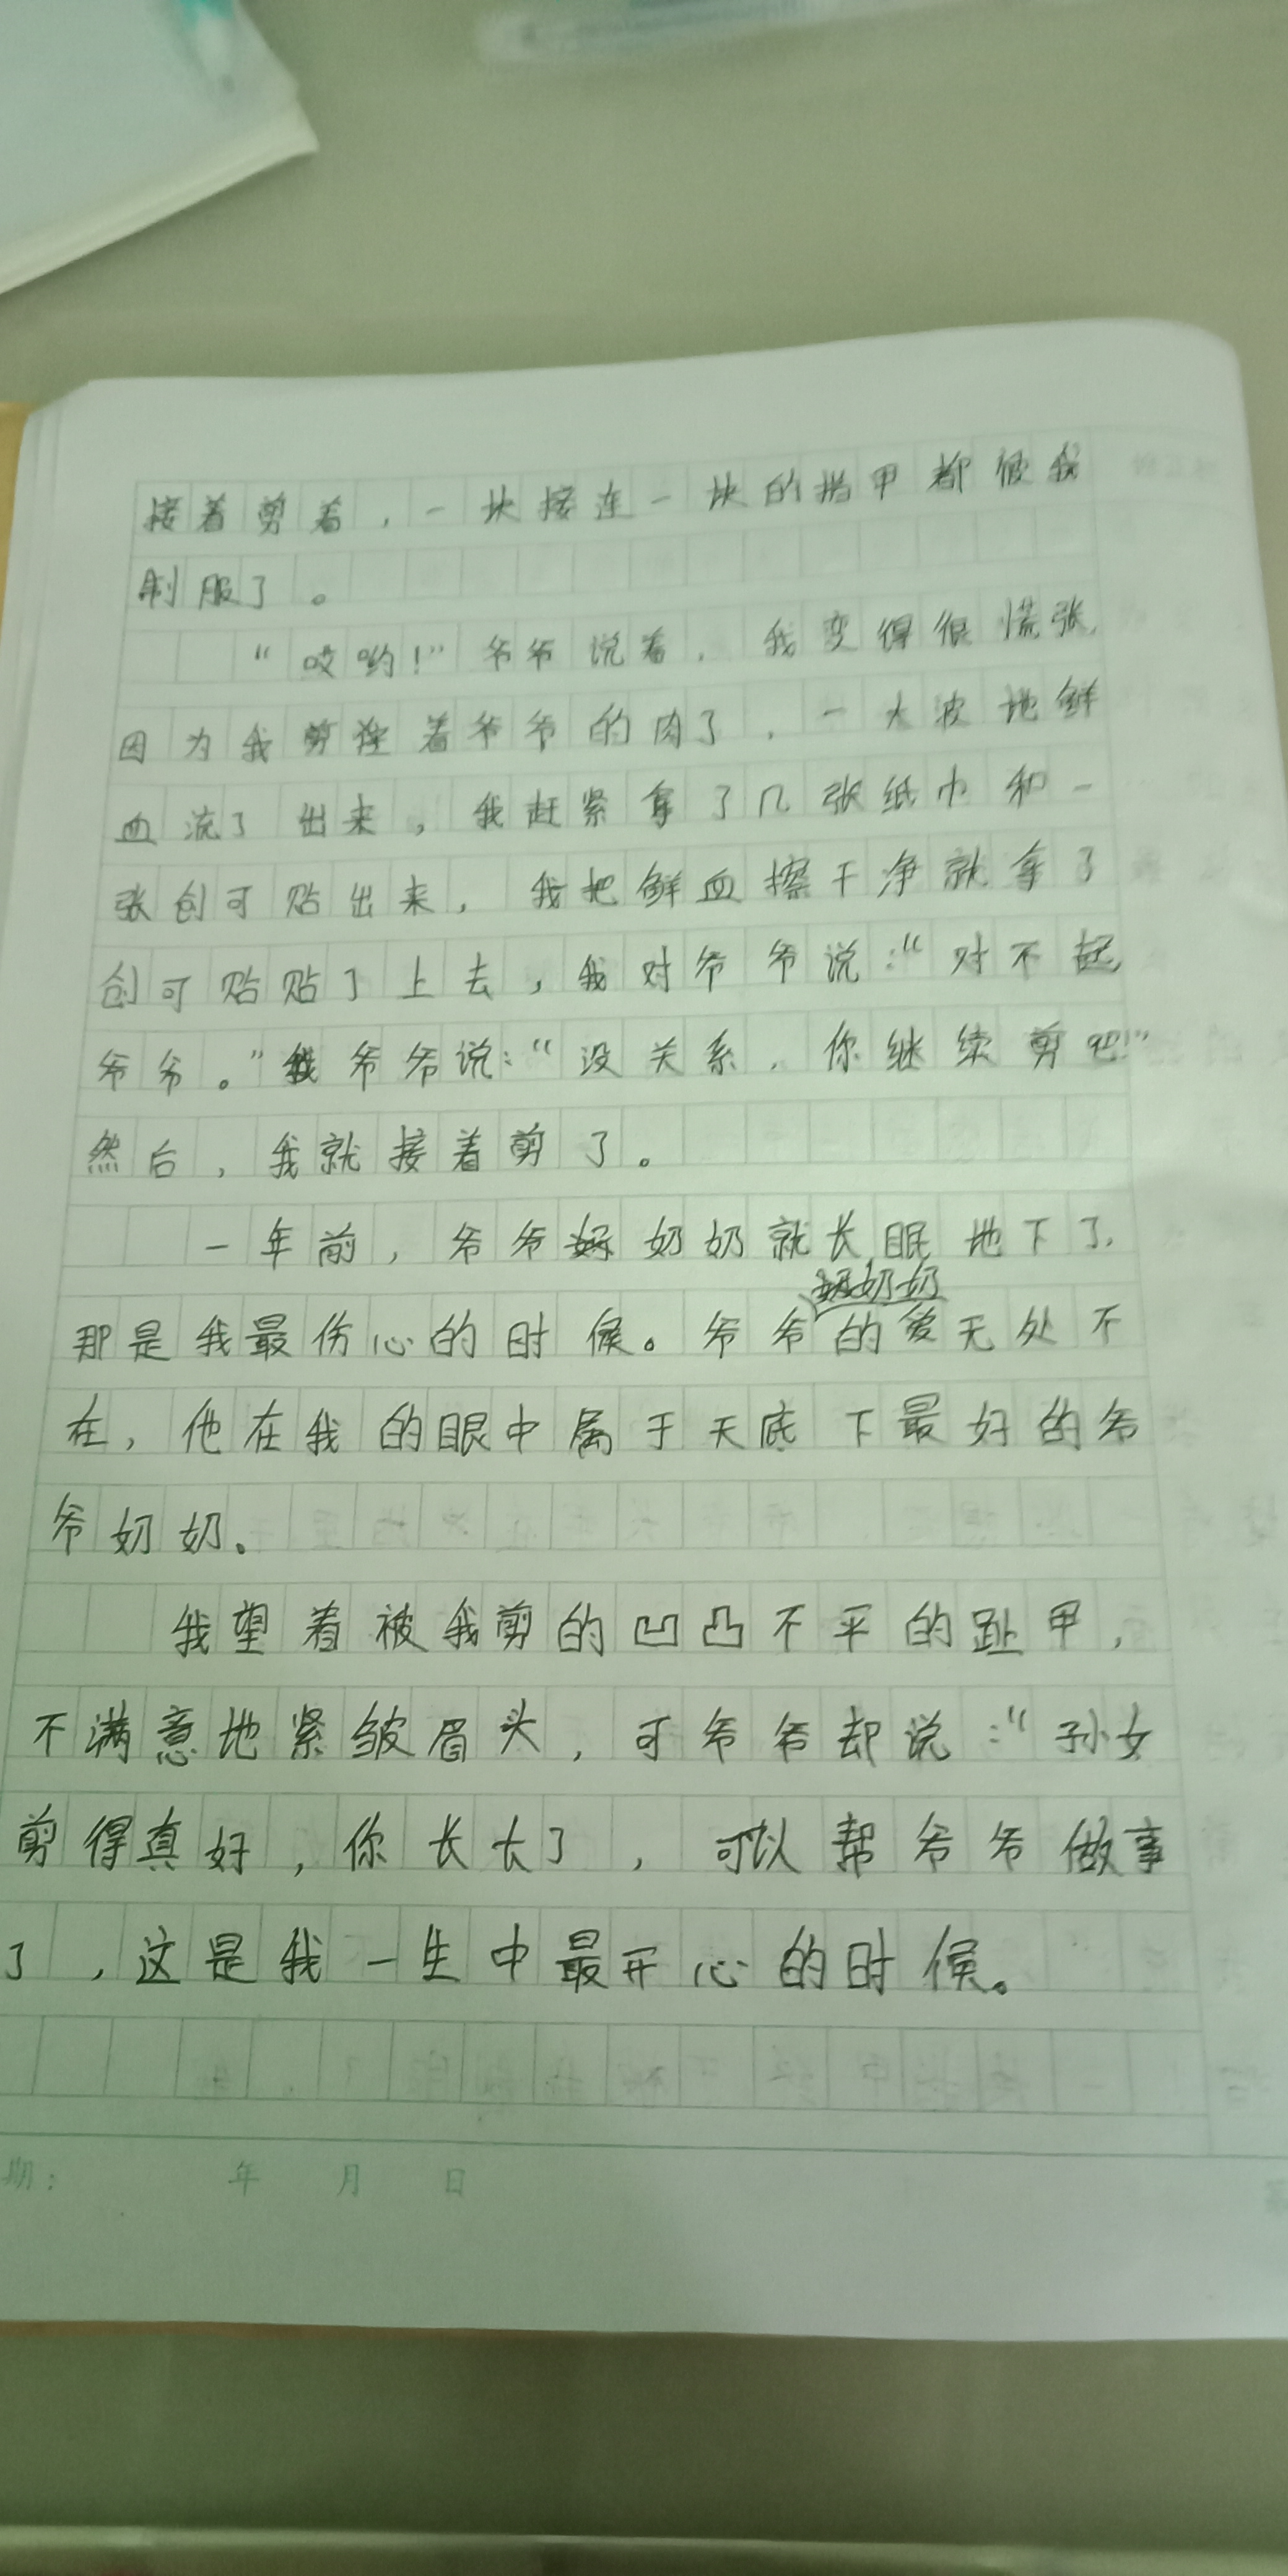 接着剪着，一块接连一块的指甲都被我
制服了。
“哎哟！”爷爷说着，我变得很慌张，
因为我剪着爷爷的肉了，一大波地鲜
血流了出来，我赶紧拿了几张纸巾和一
张创可贴出来，我把鲜血擦干净就拿了
创可贴贴了上去，我对爷爷说：“对不起，
爷爷。”爷爷说：“没关系，你继续剪吧！”
然后，我就接着剪了。
一年前，爷爷奶奶就长眠地下了，
那是我最伤心的时候。爷爷奶奶的爱无处不
在，他在我的眼中属于天底下最好的爷
爷奶奶。
我望着被我剪的凹凸不平的趾甲，
不满意地紧皱眉头，可爷爷却说：“孙女
剪得真好，你长大了，可以帮爷爷做事
了，这是我一生中最开心的时候。
期： 年 月 日